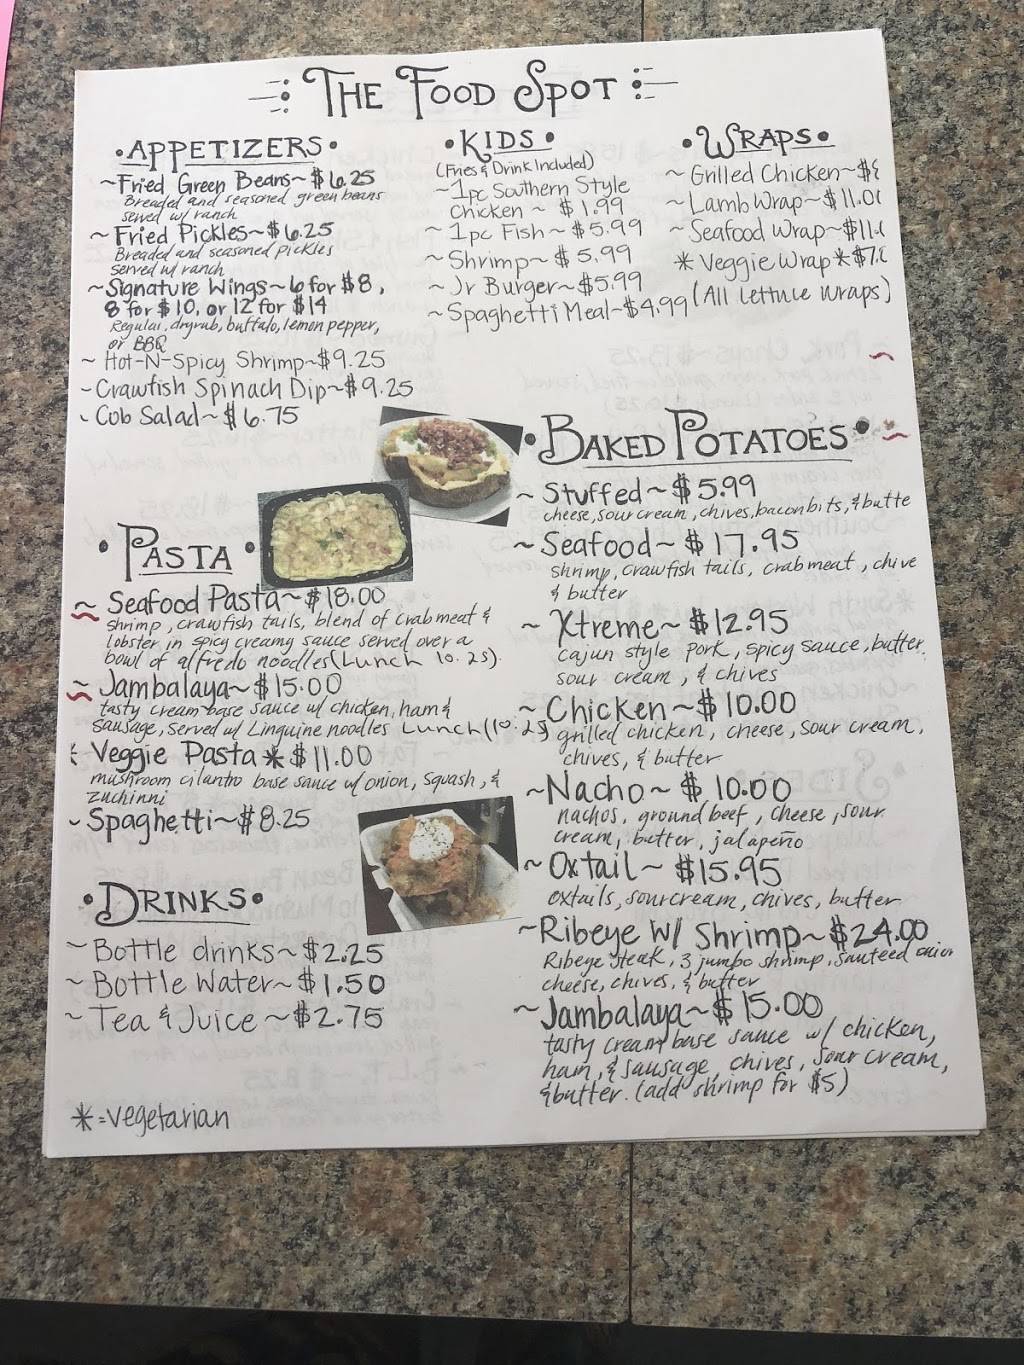 THE FOOD SPOT
APPETIZERS
~Fried Green Beans~$6.25
Breaded and seasoned green beans
served w/ ranch
~Fried Pickles~$6.25
Breaded and seasoned pickles
served w/ ranch
~Signature Wings~6 for $8,
8 for $10, or 12 for $14
Regular, dryrub, buffalo, lemon pepper,
or BBQ
~Hot-N-Spicy Shrimp~$9.25
~Crawfish Spinach Dip~$9.25
~Cob Salad~$6.75
KIDS
(Fries & Drink Included)
~1pc Southern Style
Chicken ~ $1.99
~1pc Fish~$5.99
~Shrimp~$5.99
~Jr Burger~$5.99
~Spaghetti Meal~$4.99
WRAPS
~Grilled Chicken~
~Lamb Wrap~$11.00
~Seafood Wrap~
*Veggie Wrap*
(All Lettuce Wraps)
PASTA
~Seafood Pasta~$18.00
shrimp, crawfish tails, blend of crabmeat &
lobster in spicy creamy sauce served over a
bowl of alfredo noodles (Lunch 10.25).
~Jambalaya~$15.00
tasty cream base sauce w/ chicken, ham &
sausage, served w/ Linguine noodles Lunch (10.25)
Veggie Pasta*$11.00
mushroom cilantro base sauce w/ onion, squash, &
zuchinni
~Spaghetti~$8.25
DRINKS
~Bottle drinks~$2.25
~Bottle Water~$1.50
~Tea & Juice~$2.75
*=vegetarian
BAKED POTATOES
~Stuffed~$5.99
cheese, sour cream, chives, bacon bits, & butte
~Seafood~$17.95
shrimp, crawfish tails, crabmeat, chive
& butter
~Xtreme~$12.95
cajun style pork, spicy sauce, butter,
sour cream, & chives
~Chicken~$10.00
grilled chicken, cheese, sour cream,
chives, & butter
~Nacho~$10.00
nachos, ground beef, cheese, sour
cream, butter, jalapeño
~Oxtail~$15.95
oxtails, sourcream, chives, butter
~Ribeye w/ Shrimp~$24.00
Ribeye steak, 3 jumbo shrimp, sauteed onion
cheese, chives, & butter
~Jambalaya~$15.00
tasty cream base sauce w/ chicken,
ham, & sausage, chives, sour cream,
& butter. (add shrimp for $5)